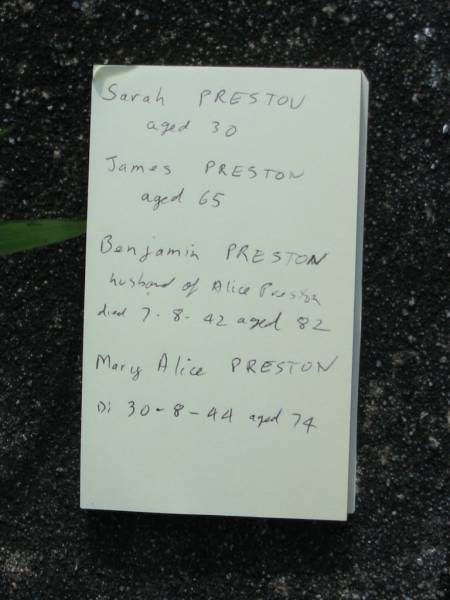 Sarah PRESTON
aged 30
James PRESTON
aged 65
Benjamin PRESTON
husband of Alice Preston
died 7-8-42 aged 82
Mary Alice PRESTON
Di 30-8-44 aged 74